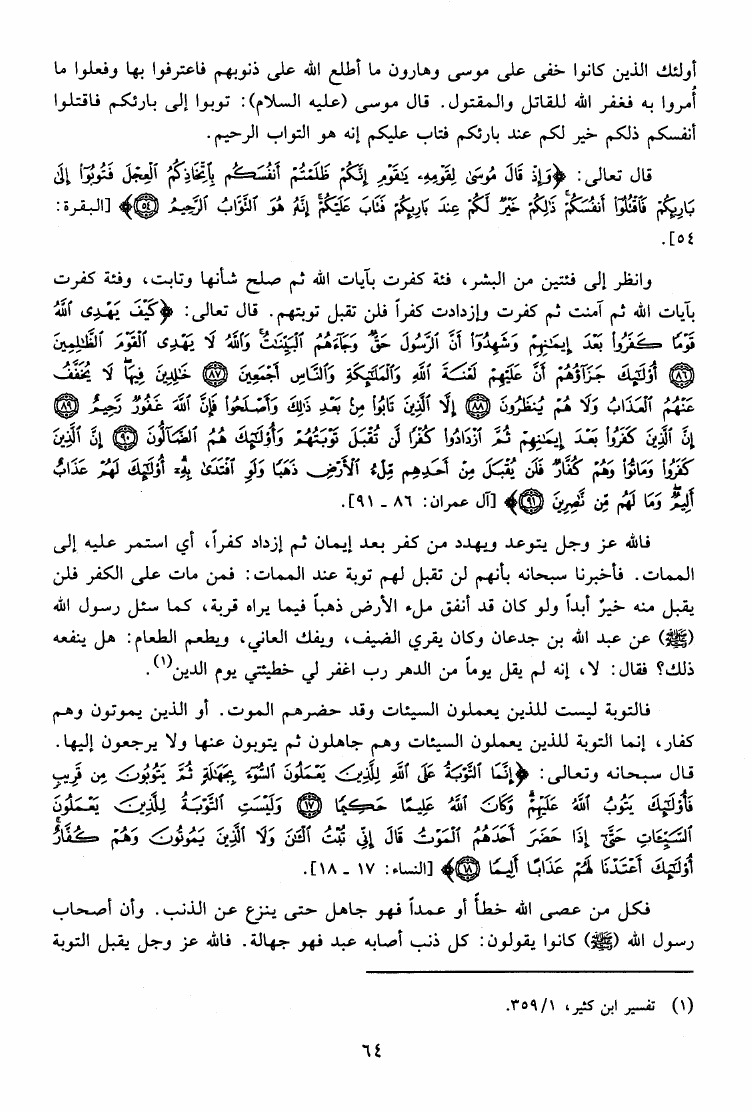 أولئك الذين كانوا خفى على موسى وهارون ما أطلع الله على ذنوبهم فاعترفوا بها وفعلوا ما
أُمروا به فغفر الله للقاتل والمقتول. قال موسى (عليه السلام): توبوا إلى بارئكم فاقتلوا
أنفسكم ذلكم خير لكم عند بارئكم فتاب عليكم إنه هو التواب الرحيم.
قال تعالى: ﴿وَإِذْ قَالَ مُوسَىٰ لِقَوْمِهِۦ يَٰقَوْمِ إِنَّكُمْ ظَلَمْتُمْ أَنفُسَكُم بِٱتِّخَاذِكُمُ ٱلْعِجْلَ فَتُوبُوٓا۟ إِلَىٰ
بَارِئِكُمْ فَٱقْتُلُوٓا۟ أَنفُسَكُمْ ذَٰلِكُمْ خَيْرٌ لَّكُمْ عِندَ بَارِئِكُمْ فَتَابَ عَلَيْكُمْ إِنَّهُۥ هُوَ ٱلتَّوَّابُ ٱلرَّحِيمُ ۝٥٤﴾ [البقرة:
٥٤].
وانظر إلى فئتين من البشر، فئة كفرت بآيات الله ثم صلح شأنها وتابت، وفئة كفرت
بآيات الله ثم آمنت ثم كفرت وإزدادت كفراً فلن تقبل توبتهم. قال تعالى: ﴿كَيْفَ يَهْدِى ٱللَّهُ
قَوْمًا كَفَرُوا۟ بَعْدَ إِيمَٰنِهِمْ وَشَهِدُوٓا۟ أَنَّ ٱلرَّسُولَ حَقٌّ وَجَآءَهُمُ ٱلْبَيِّنَٰتُ وَٱللَّهُ لَا يَهْدِى ٱلْقَوْمَ ٱلظَّٰلِمِينَ
۝٨٦ أُو۟لَٰٓئِكَ جَزَآؤُهُمْ أَنَّ عَلَيْهِمْ لَعْنَةَ ٱللَّهِ وَٱلْمَلَٰٓئِكَةِ وَٱلنَّاسِ أَجْمَعِينَ ۝٨٧ خَٰلِدِينَ فِيهَا لَا يُخَفَّفُ
عَنْهُمُ ٱلْعَذَابُ وَلَا هُمْ يُنظَرُونَ ۝٨٨ إِلَّا ٱلَّذِينَ تَابُوا۟ مِنۢ بَعْدِ ذَٰلِكَ وَأَصْلَحُوا۟ فَإِنَّ ٱللَّهَ غَفُورٌ رَّحِيمٌ ۝٨٩
إِنَّ ٱلَّذِينَ كَفَرُوا۟ بَعْدَ إِيمَٰنِهِمْ ثُمَّ ٱزْدَادُوا۟ كُفْرًا لَّن تُقْبَلَ تَوْبَتُهُمْ وَأُو۟لَٰٓئِكَ هُمُ ٱلضَّآلُّونَ ۝٩٠ إِنَّ ٱلَّذِينَ
كَفَرُوا۟ وَمَاتُوا۟ وَهُمْ كُفَّارٌ فَلَن يُقْبَلَ مِنْ أَحَدِهِم مِّلْءُ ٱلْأَرْضِ ذَهَبًا وَلَوِ ٱفْتَدَىٰ بِهِۦٓ أُو۟لَٰٓئِكَ لَهُمْ عَذَابٌ
أَلِيمٌ وَمَا لَهُم مِّن نَّٰصِرِينَ ۝٩١﴾ [آل عمران: ٨٦ ـ ٩١].
فالله عز وجل يتوعد ويهدد من كفر بعد إيمان ثم إزداد كفراً، أي استمر عليه إلى
الممات. فأخبرنا سبحانه بأنهم لن تقبل لهم توبة عند الممات: فمن مات على الكفر فلن
يقبل منه خيرٌ أبداً ولو كان قد أنفق ملء الأرض ذهباً فيما يراه قربة، كما سئل رسول الله
(ﷺ) عن عبد الله بن جدعان وكان يقري الضيف، ويفك العاني، ويطعم الطعام: هل ينفعه
ذلك؟ فقال: لا، إنه لم يقل يوماً من الدهر رب اغفر لي خطيئتي يوم الدين(١).
فالتوبة ليست للذين يعملون السيئات وقد حضرهم الموت. أو الذين يموتون وهم
كفار، إنما التوبة للذين يعملون السيئات وهم جاهلون ثم يتوبون عنها ولا يرجعون إليها.
قال سبحانه وتعالى: ﴿إِنَّمَا ٱلتَّوْبَةُ عَلَى ٱللَّهِ لِلَّذِينَ يَعْمَلُونَ ٱلسُّوٓءَ بِجَهَٰلَةٍ ثُمَّ يَتُوبُونَ مِن قَرِيبٍ
فَأُو۟لَٰٓئِكَ يَتُوبُ ٱللَّهُ عَلَيْهِمْ وَكَانَ ٱللَّهُ عَلِيمًا حَكِيمًا ۝١٧ وَلَيْسَتِ ٱلتَّوْبَةُ لِلَّذِينَ يَعْمَلُونَ
ٱلسَّيِّـَٔاتِ حَتَّىٰٓ إِذَا حَضَرَ أَحَدَهُمُ ٱلْمَوْتُ قَالَ إِنِّى تُبْتُ ٱلْـَٰٔنَ وَلَا ٱلَّذِينَ يَمُوتُونَ وَهُمْ كُفَّارٌ
أُو۟لَٰٓئِكَ أَعْتَدْنَا لَهُمْ عَذَابًا أَلِيمًا ۝١٨﴾ [النساء: ١٧ ـ ١٨].
فكل من عصى الله خطأً أو عمداً فهو جاهل حتى ينزع عن الذنب. وأن أصحاب
رسول الله (ﷺ) كانوا يقولون: كل ذنب أصابه عبد فهو جهالة. فالله عز وجل يقبل التوبة
(١) تفسير ابن كثير، ٣٥٩/١.
٦٤